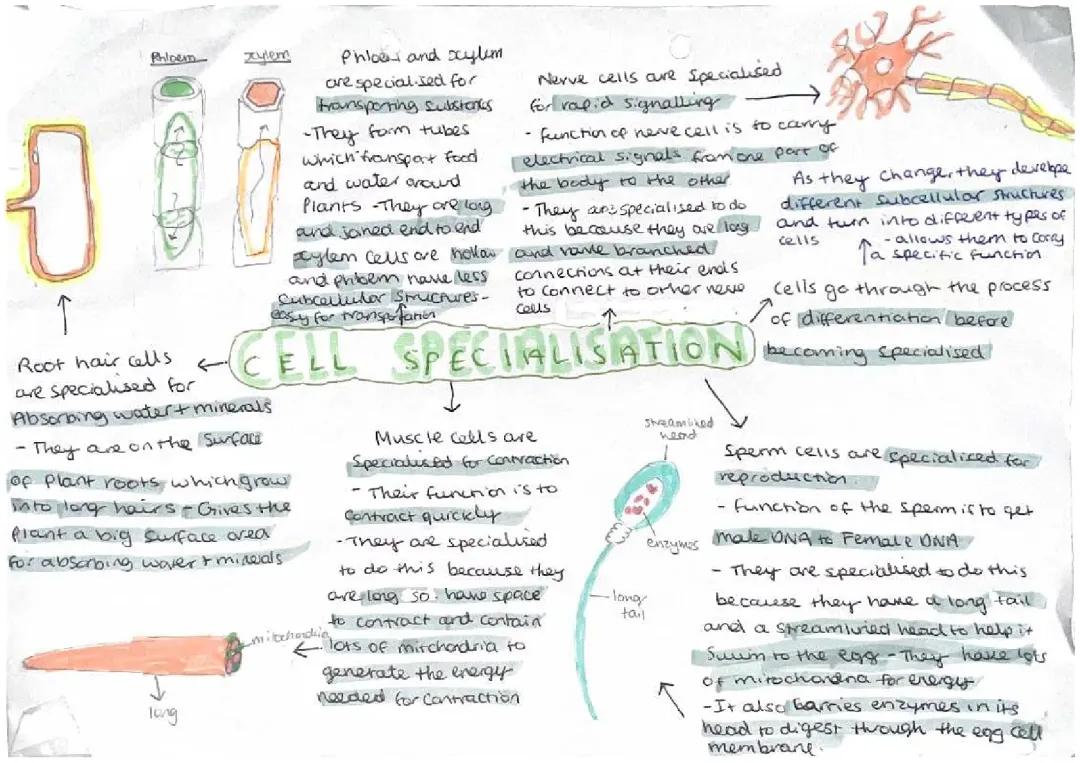 Phloem
xylem
Phloem and xylem
are specialised for
transporting substances
-They form tubes
which transport food
and water around
Plants -They are long
and joined end to end
xylem cells are hollow
and phloem have less
subcellular structures-
easy for transportation
Nerve cells are specialised
for rapid signalling
- function of nerve cell is to carry
electrical signals from one part of
the body to the other
- They are specialised to do
this because they are long
and have branched
connections at their ends
to connect to other nerve
cells
As they change, they develope
different subcellular structures
and turn into different types of
cells
- allows them to carry
a specific function
Cells go through the process
of differentiation before
becoming specialised
CELL SPECIALISATION
Root hair cells
are specialised for
Absorbing water + minerals
- They are on the surface
of plant roots, which grow
into long hairs - Gives the
plant a big surface area
for absorbing water + minerals
mitochondria
long
Muscle cells are
specialised for contraction
- Their function is to
contract quickly
-They are specialised
to do this because they
are long so have space
to contract and contain
lots of mitchondria to
generate the energy
needed for contraction
streamlined
head
enzymes
long
tail
Sperm cells are specialised for
reproduction.
- function of the sperm is to get
male DNA to Female DNA
- They are specialised to do this
because they have a long tail
and a streamlined head to help it
swim to the egg - They have lots
of mitochondria for energy
-It also carries enzymes in its
head to digest through the egg cell
membrane.